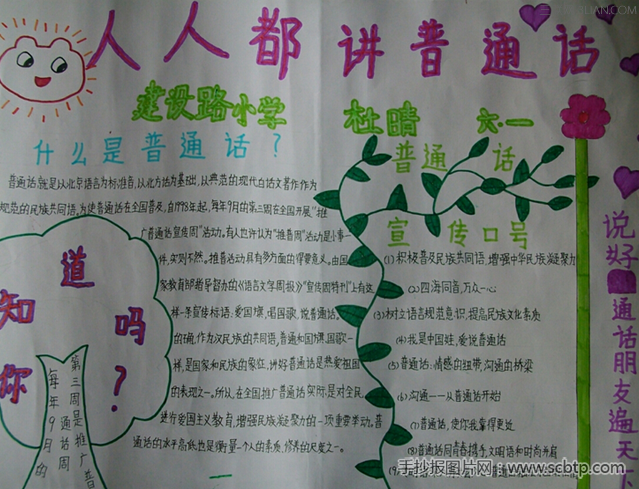 人人都讲普通话
建设路小学 杜晴 六一
什么是普通话？
普通话,就是以北京语言为标准音,以北方话为基础,以典范的现代白话文著作作为
规范的民族共同语,为使普通话在全国普及,自1998年起,每年9月的第三周在全国开展“推
广普通话宣传周”活动。有人也许认为“推普周”活动是小事一
件,实则不然。推普活动具有多方面的得要意义。由国
家教育部指导督力的《语言文学周报》“宣传周特刊”上有这
样一条宣传标语:爱国旗,唱国歌,说普通话。
的确,作为汉民族的共同语,普通和国旗国歌一
样,是国家和民族的象征,讲好普通话是热爱祖国
的表现之一。所以,在全国推广普通话实际,是对全民
进行爱国主义教育,增强民族凝聚力的一项重要举动。普
通话的水平高低也是衡量一个人的素质,修养的尺度之一。
你知道吗？
每年9月的
第三周是推广普
通话周
普通话
宣传口号
(1)积极普及民族共同语,增强中华民族凝聚力
(2)四海同音,万众一心
(3)树立语言规范意识,提高民族文化素质
(4)我是中国娃,爱说普通话
(5)普通话:情感的纽带,沟通的桥梁
(6)沟通——从普通话开始
(7)普通话,使你我靠得更近
(8)普通话同青春携手,文明语和时尚并肩
说好普通话朋友遍天下
手抄报图片网:www.scbtp.com